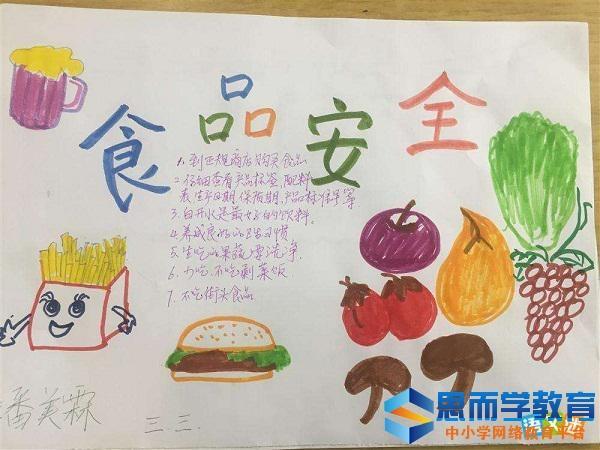 食品安全
1. 到正规商店购买食品
2. 仔细查看产品标签、配料
表、生产日期、保质期、产品
3. 白开水是最好的饮料.
4. 养成良好的卫生习惯
5. 生吃瓜果蔬要洗净.
6. 少吃、不吃剩菜饭
7. 不吃街头食品
潘美霖
三.三.
思而学教育
中小学网络教育平台